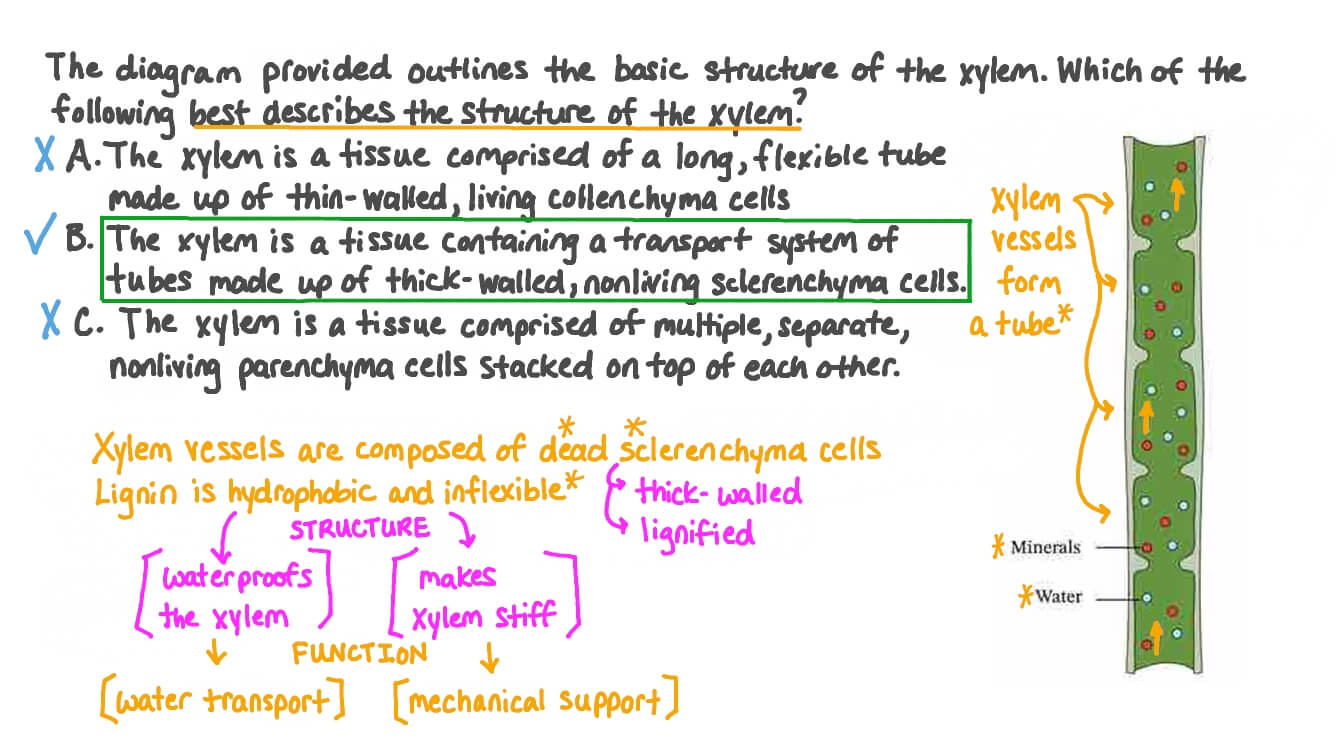 The diagram provided outlines the basic structure of the xylem. Which of the
following best describes the structure of the xylem?
X A. The xylem is a tissue comprised of a long, flexible tube
made up of thin-walled, living collenchyma cells
✓ B. The xylem is a tissue containing a transport system of
tubes made up of thick-walled, nonliving sclerenchyma cells.
X C. The xylem is a tissue comprised of multiple, separate,
nonliving parenchyma cells stacked on top of each other.
xylem
vessels
form
a tube*
Xylem vessels are composed of dead* sclerenchyma* cells
Lignin is hydrophobic and inflexible*
thick-walled
lignified
STRUCTURE
[waterproofs
the xylem]
[makes
xylem stiff]
FUNCTION
[water transport]
[mechanical support]
* Minerals
* Water